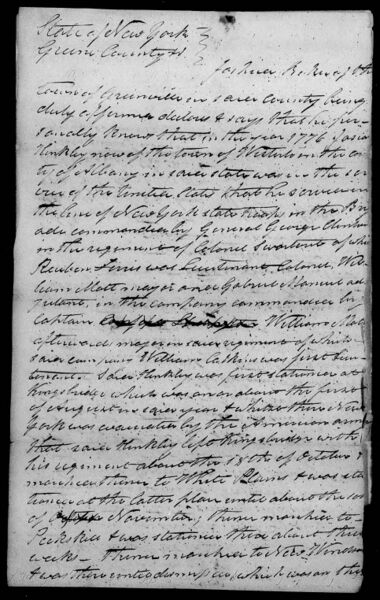 State of New York }
Greene County ss }
Joshua Baker of the
town of Greenville in said County being
duly affirmed declares & says that he per-
sonally knew that in the year 1776 Josia
Hinkley now of the town of in the coun
ty of Albany in said state was in the ser
vice of the United States that he served in
the line of New York state troops in the Brig
ade commanded by General George Clinton
in the regiment of Colonel of which
Reuben was Lieutenant Colonel, Wil
liam Mott major and Gabriel ad
jutant, in the company commanded by
Captain William Mott
afterward major in said regiment of which
said company William was first lieu
tenant. Said Hinkley was first stationed at
Kingsbridge which was on or about the first
of August in said year & whilst there New
York was evacuated by the American army
that said Hinkley left Kingsbridge with
his regiment about the 18th of October &
marched thence to White Plains & was sta
tioned at the latter place until about the
of November, thence marched to
Peekskill & was stationed there about three
weeks - thence marched to New Windsor
& was there until dismissed, which was on the